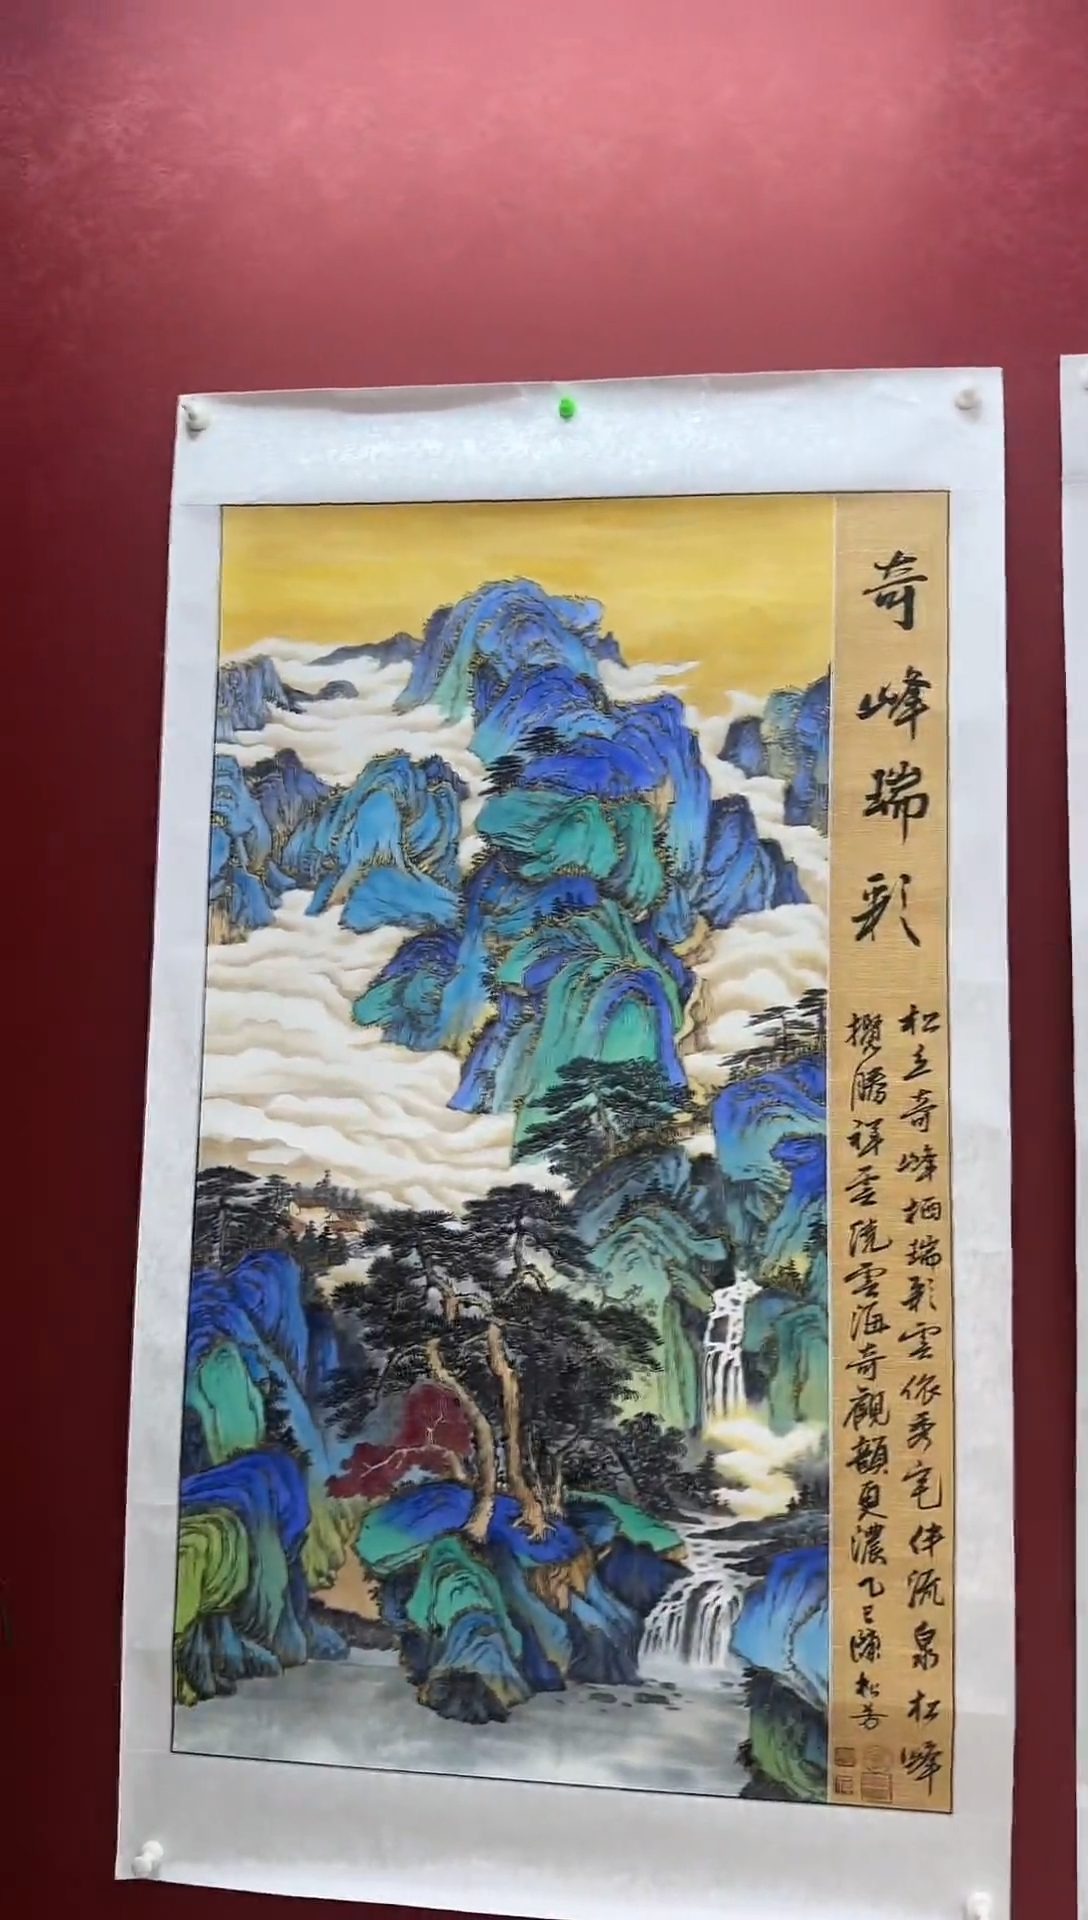 奇峰瑞彩
松立奇峰栖瑞彩雲依秀宅伴流泉松峰
攬勝祥雲繞雲海奇觀韻更濃乙巳陳松芳